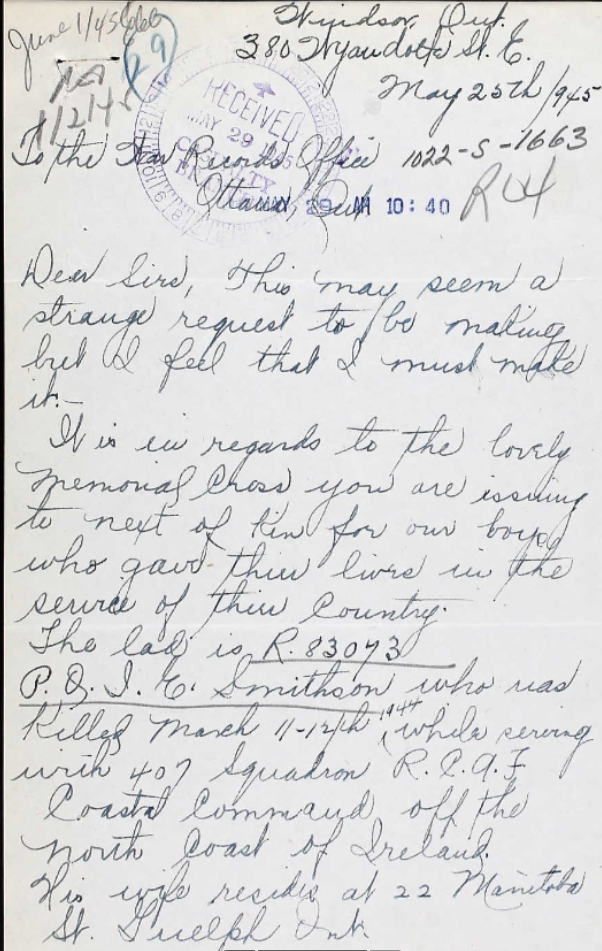 June 1/45
29
Windsor, Ont.
380 Wyandotte St. E.
May 25th/945
NA
1/2/45
RECEIVED
MAY 29 1945
To the War Records Office 1022-S-1663
Ottawa, Ont
MAY 29 AM 10:40
R44
Dear Sirs, This may seem a
strange request to be making
but I feel that I must make
it.-
It is in regards to the lovely
Memorial Cross you are issuing
to next of kin for our boys
who gave thier lives in the
service of thier Country.
The lad is R.83073
P.O. I. C. Smithson who was
killed March 11-12th 1944, while serving
with 407 Squadron R.C.A.F.
Coastal Command, off the
North Coast of Ireland.
His wife resides at 22 Manitoba
St. Guelph Ont.